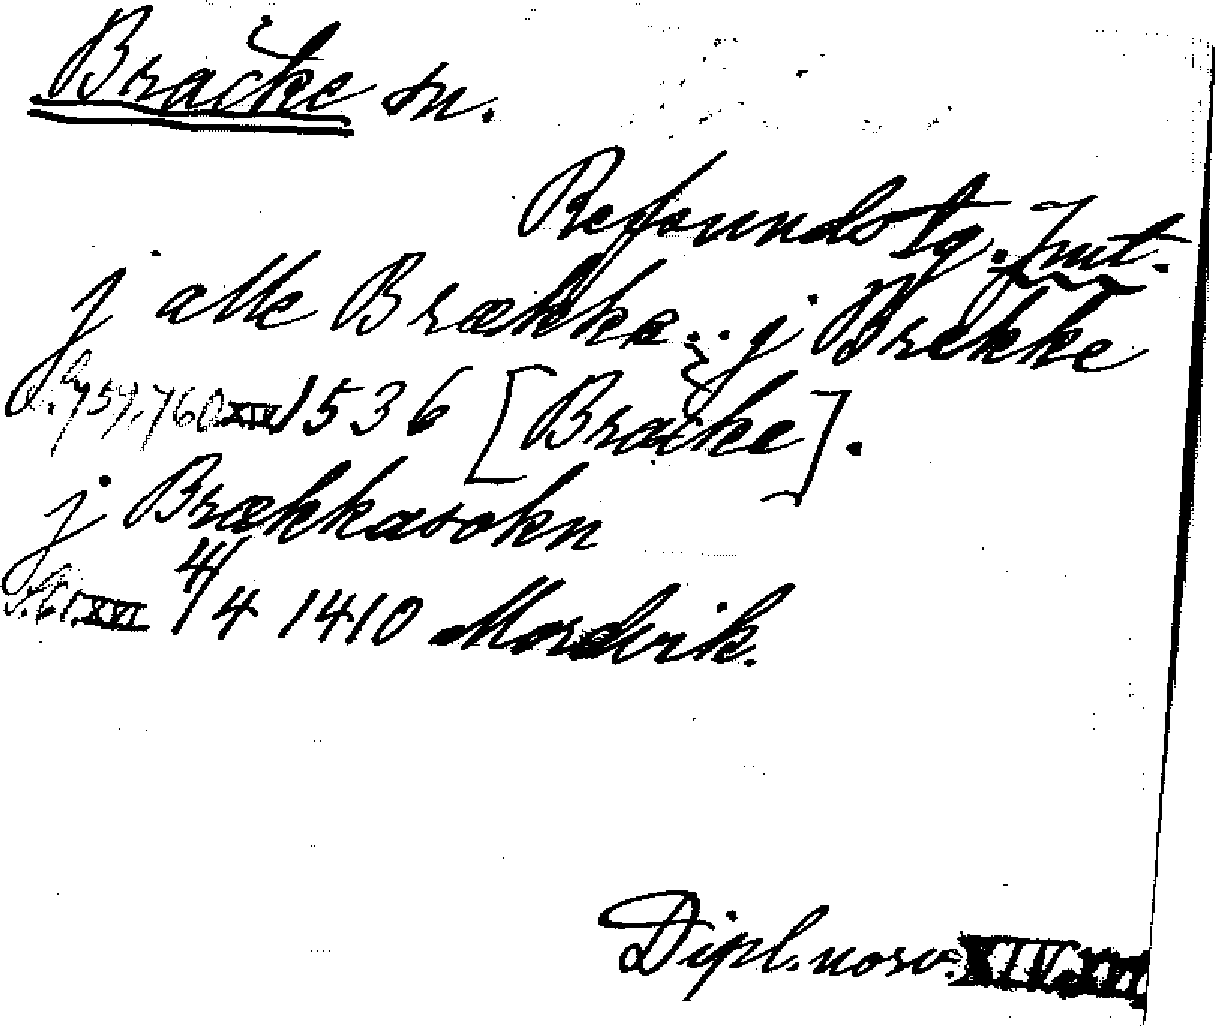 Bräcke sn.
Refsunds tg. Jmt.
j alle Brække.. j Brekke
S. 759, 760 XIV 1536 [Bräcke].
j Brækkasokn
S. 61. XVI 4/4 1410 Mordvik.
Dipl. norv. XIV. XVI